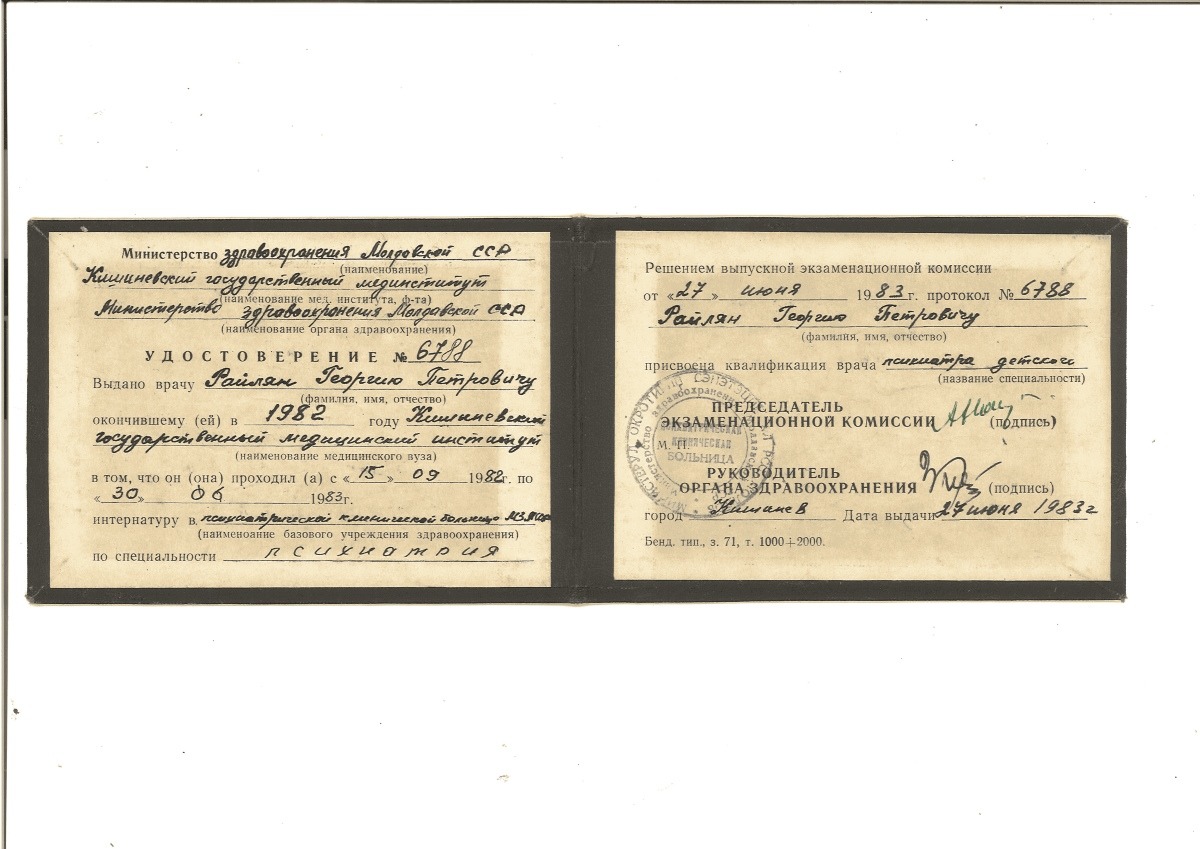 Министерство здравоохранения Молдавской ССР
(наименование)
Кишиневский государственный мединститут
(наименование мед. института, ф-та)
Министерство здравоохранения Молдавской ССР
(наименование органа здравоохранения)
УДОСТОВЕРЕНИЕ № 6788
Выдано врачу Райлян Георгию Петровичу
(фамилия, имя, отчество)
окончившему (ей) в 1982 году Кишиневский
государственный медицинский институт
(наименование медицинского вуза)
в том, что он (она) проходил (а) с «15» 09 1982г. по
«30» 06 1983г.
интернатуру в психиатрической клинической больнице МЗ МССР
(наименоание базового учреждения здравоохранения)
по специальности психиатрия
Решением выпускной экзаменационной комиссии
от «27» июня 1983г. протокол № 6788
Райлян Георгию Петровичу
(фамилия, имя, отчество)
присвоена квалификация врача психиатра детского
(название специальности)
ПРЕДСЕДАТЕЛЬ
ЭКЗАМЕНАЦИОННОЙ КОМИССИИ (подпись)
М. П.
ПСИХИАТРИЧЕСКАЯ
КЛИНИЧЕСКАЯ
БОЛЬНИЦА
РУКОВОДИТЕЛЬ
ОРГАНА ЗДРАВООХРАНЕНИЯ (подпись)
город Кишинев Дата выдачи 27 июня 1983г
Бенд. тип., з. 71, т. 1000+2000.